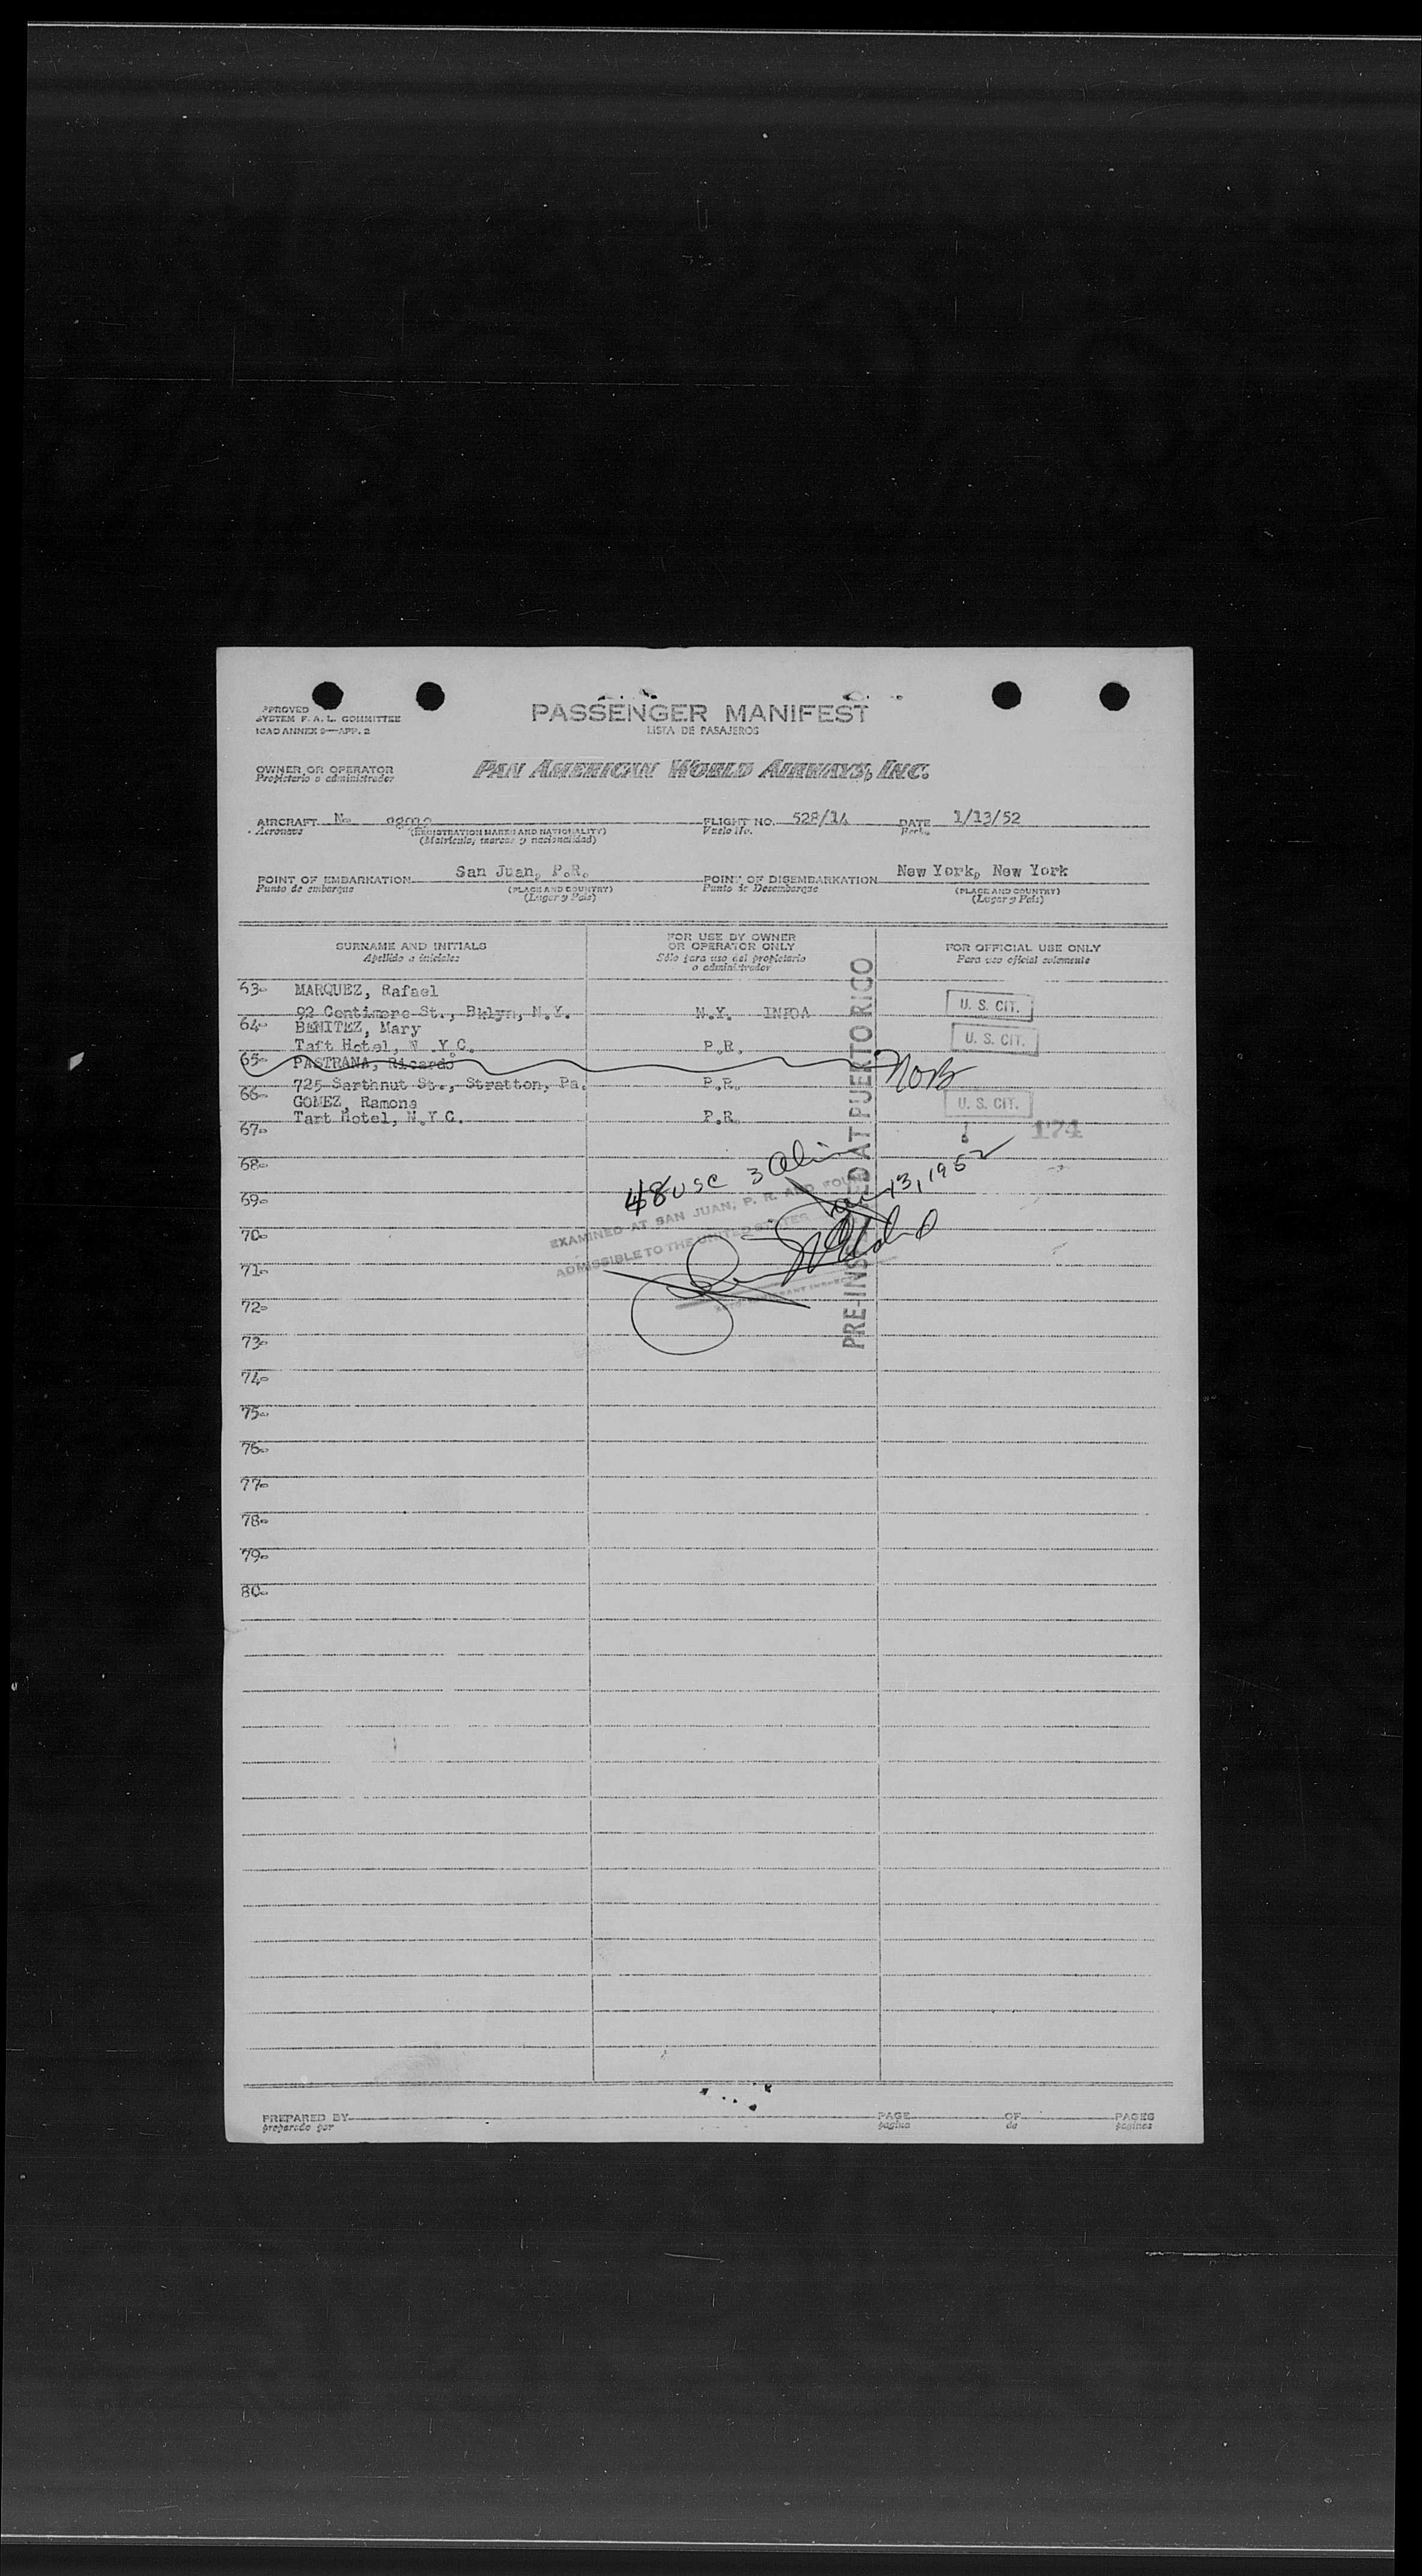 PROVED
SYSTEM F. A. L. COMMITTEE
ICAO ANNEX 9—APP. 2
PASSENGER MANIFEST
LISTA DE PASAJEROS
OWNER OR OPERATOR
Propietario o administrador
PAN AMERICAN WORLD AIRWAYS, INC.
AIRCRAFT N- FLIGHT NO. 528/14 DATE 1/13/52
Aeronave (REGISTRATION MARKS AND NATIONALITY) Vuelo No. Fecha
(Matrícula, marcas y nacionalidad)
POINT OF EMBARKATION San Juan, P.R. POINT OF DISEMBARKATION New York, New York
Punto de embarque (PLACE AND COUNTRY) Punto de Desembarque (PLACE AND COUNTRY)
(Lugar y País) (Lugar y País)
SURNAME AND INITIALS FOR USE BY OWNER OR OPERATOR ONLY FOR OFFICIAL USE ONLY
Apellido e iniciales Sólo para uso del propietario o administrador Para uso oficial solamente
63- MARQUEZ, Rafael
92 St., Bklyn, N.Y. N.Y. U. S. CIT.
64- BENITEZ, Mary
Taft Hotel, N.Y.C. P.R. U. S. CIT.
65- PASTRANA, Ricardo
725 Sarthnut St., Stratton, Pa. P.R. NOB
66- GOMEZ, Ramona U. S. CIT.
Tart Hotel, N.Y.C. P.R.
67- 174
68-
48 USC 3 Jan 13, 1952
69-
EXAMINED AT SAN JUAN, P. R. AND FOUND
70-
ADMISSIBLE TO THE UNITED STATES
71-
72-
73-
PRE-INSPECTED AT PUERTO RICO
74-
75-
76-
77-
78-
79-
80-
PREPARED BY PAGE OF PAGES
preparado por página de páginas